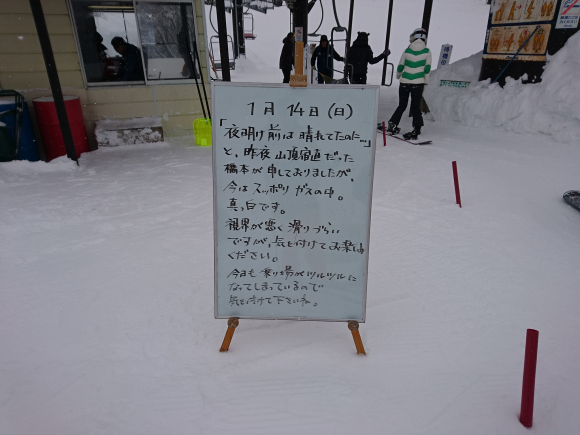 1月14日(日)
「夜明け前は晴れてたのに…」
と、昨夜山頂宿直だった
橋本が申しておりましたが、
今はスッポリガスの中。
真っ白です。
視界が悪く滑りづらい
ですが、気を付けてお楽しみ
ください。
今日も乗り場がツルツルに
なってしまっているので
気を付けて下さいネ。